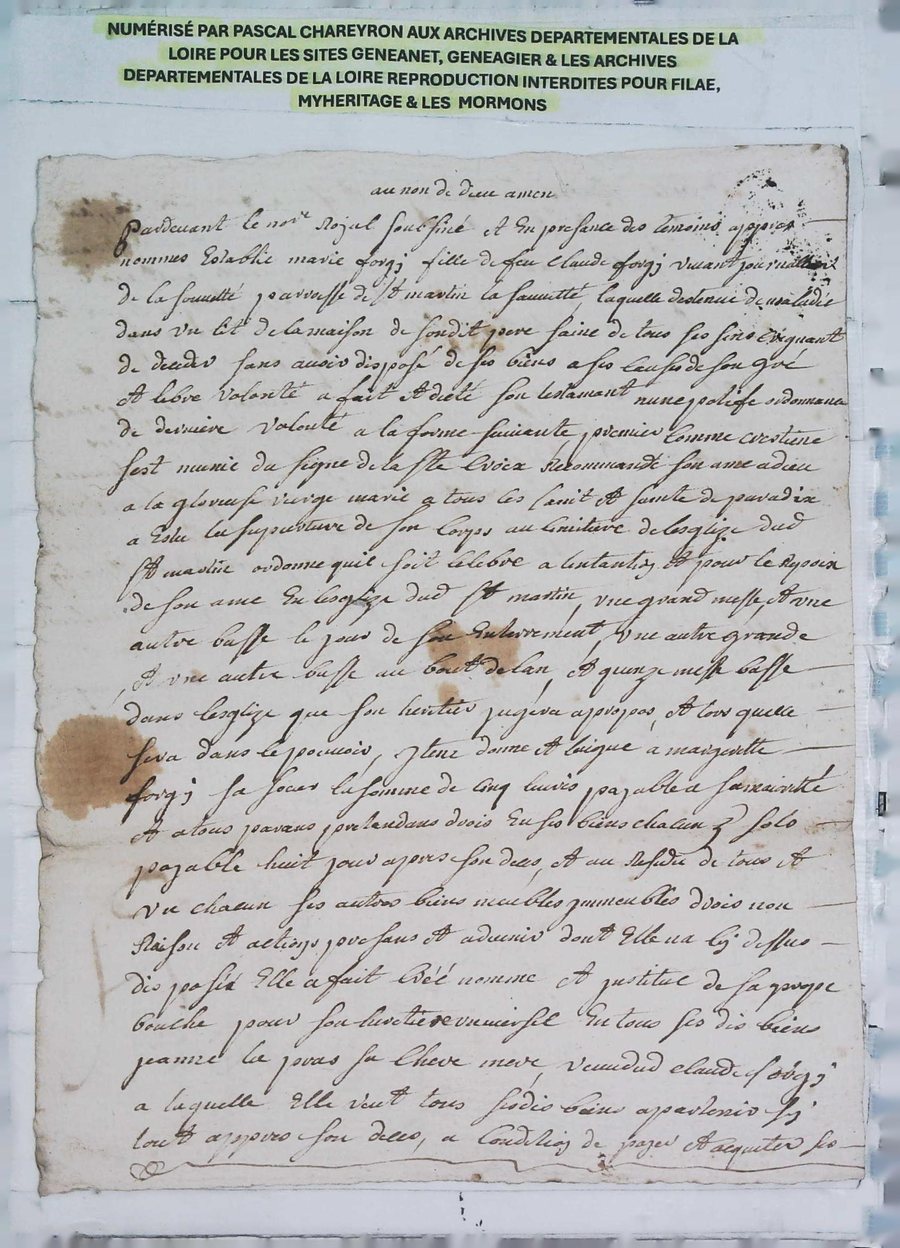 NUMÉRISÉ PAR PASCAL CHAREYRON AUX ARCHIVES DEPARTEMENTALES DE LA
LOIRE POUR LES SITES GENEANET, GENEAGIER & LES ARCHIVES
DEPARTEMENTALES DE LA LOIRE REPRODUCTION INTERDITES POUR FILAE,
MYHERITAGE & LES MORMONS
au non de dieu amen
Pardevant le nore Royal soussiné et En presance des temoins appres
nommes Establie marie forgj fille de feu Claude forgj vivant journallier
de la sauveté parroisse de st martin la sauveté, laquelle destenue de maladie
dans un lit de la maison de sondit pere saine de tous ses sens creignant
de deceder sans avoir disposé de ses biens a ses causes de son gré
et libre volonté a fait et dicté son testamant nuncpatife ordonnance
de derniere volonté a la forme suivante premier comme crestiene
sest munie du signe de la ste Croix Recommandé son ame a dieu
a la glorieuse vierge marie a tous les saint et sainte de paradix
a Eslu la sepulture de son Corps au Cimitiere de lesglize dud
st martin ordonne quil soit celebré a lintantion et pour le Repoix
de son ame En lesglize dud st martin, une grand messe et une
autre basse le jour de son Enterrement, une autre grande
et une autre basse au bout de lan, et quinze messe basse
dans lesglize que son heritier jugera apropos, et lors quelle
sera dans le pouvoir, jtenz donne et legue a margeritte
forgj sa soeur la somme de cinq livres payable a sa majorité
et a tous parans pretendans drois En ses biens chacun 5 solz
payable huit jour apres son deces, et au Residu de tous et
un chacun ses autres biens meubles jmmeubles drois non
Raison et actions presans et advenir dont Elle na cy dessus
disposér Elle a fait créé nommé et jnstitué de sa propre
bouche pour son heretiere universel En tous ses dis biens
jeanne la pras sa chere mere, veuve dud claude forgj
a laquelle Elle veut tous sesdis biens apartenir sy
tout appres son deces, a Condition de payer et acquiter ses